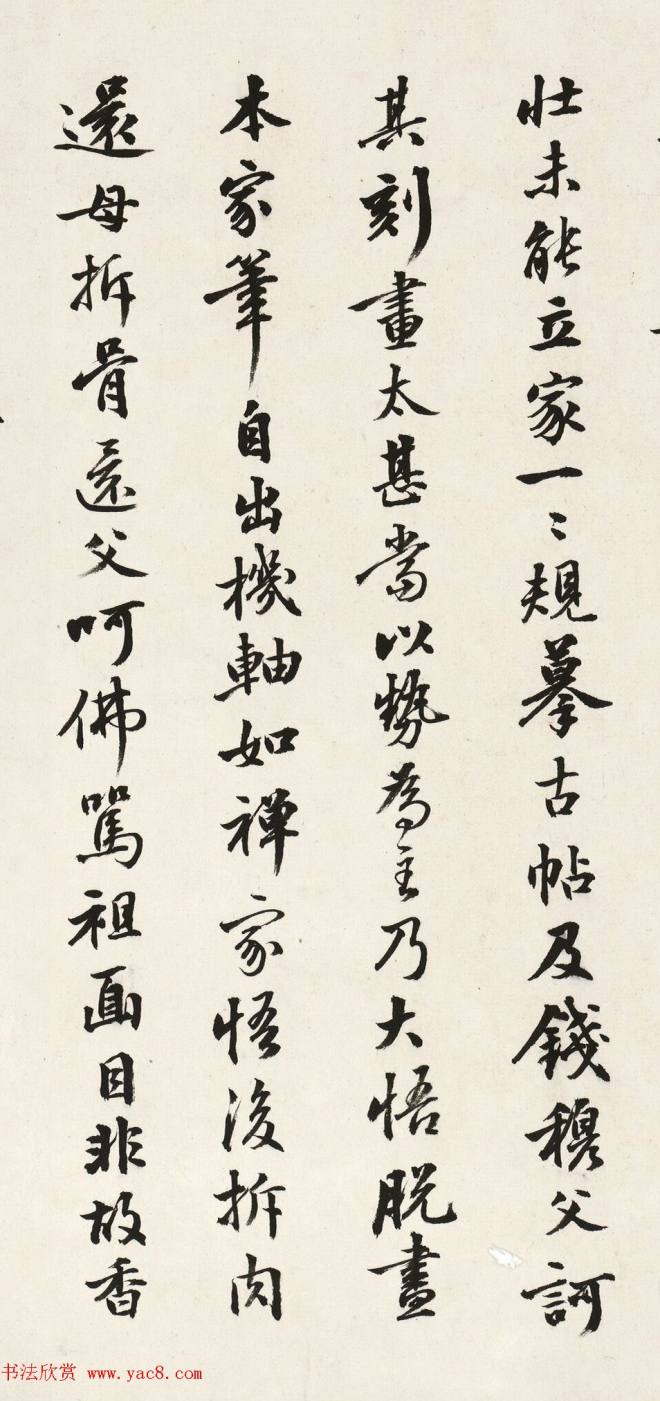 壯未能立家一〻規摹古帖及錢穆父訶
其刻畫太甚當以勢為主乃大悟脫盡
本家筆自出機軸如禪家悟後拆肉
還母拆骨還父呵佛罵祖面目非故香
书法欣赏 www.yac8.com